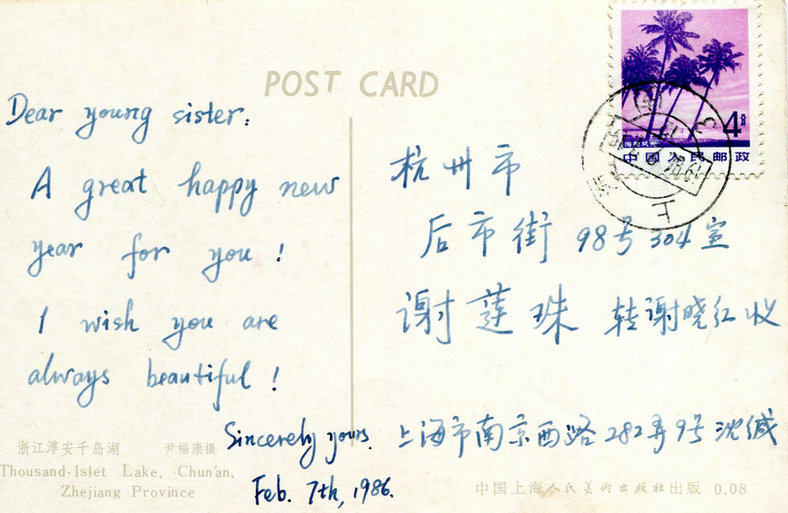 POST CARD
Dear young sister:
A great happy new
year for you!
I wish you are
always beautiful!
Sincerely yours.
Feb. 7th, 1986.
4分
中国人民邮政
上
杭州市
后市街 98号 304室
谢莲珠 转谢晓红收
上海市南京西路282弄9号 沈缄
浙江淳安千岛湖 尹福康摄
Thousand-Islet Lake, Chun'an,
Zhejiang Province
中国上海人民美术出版社出版 0.08